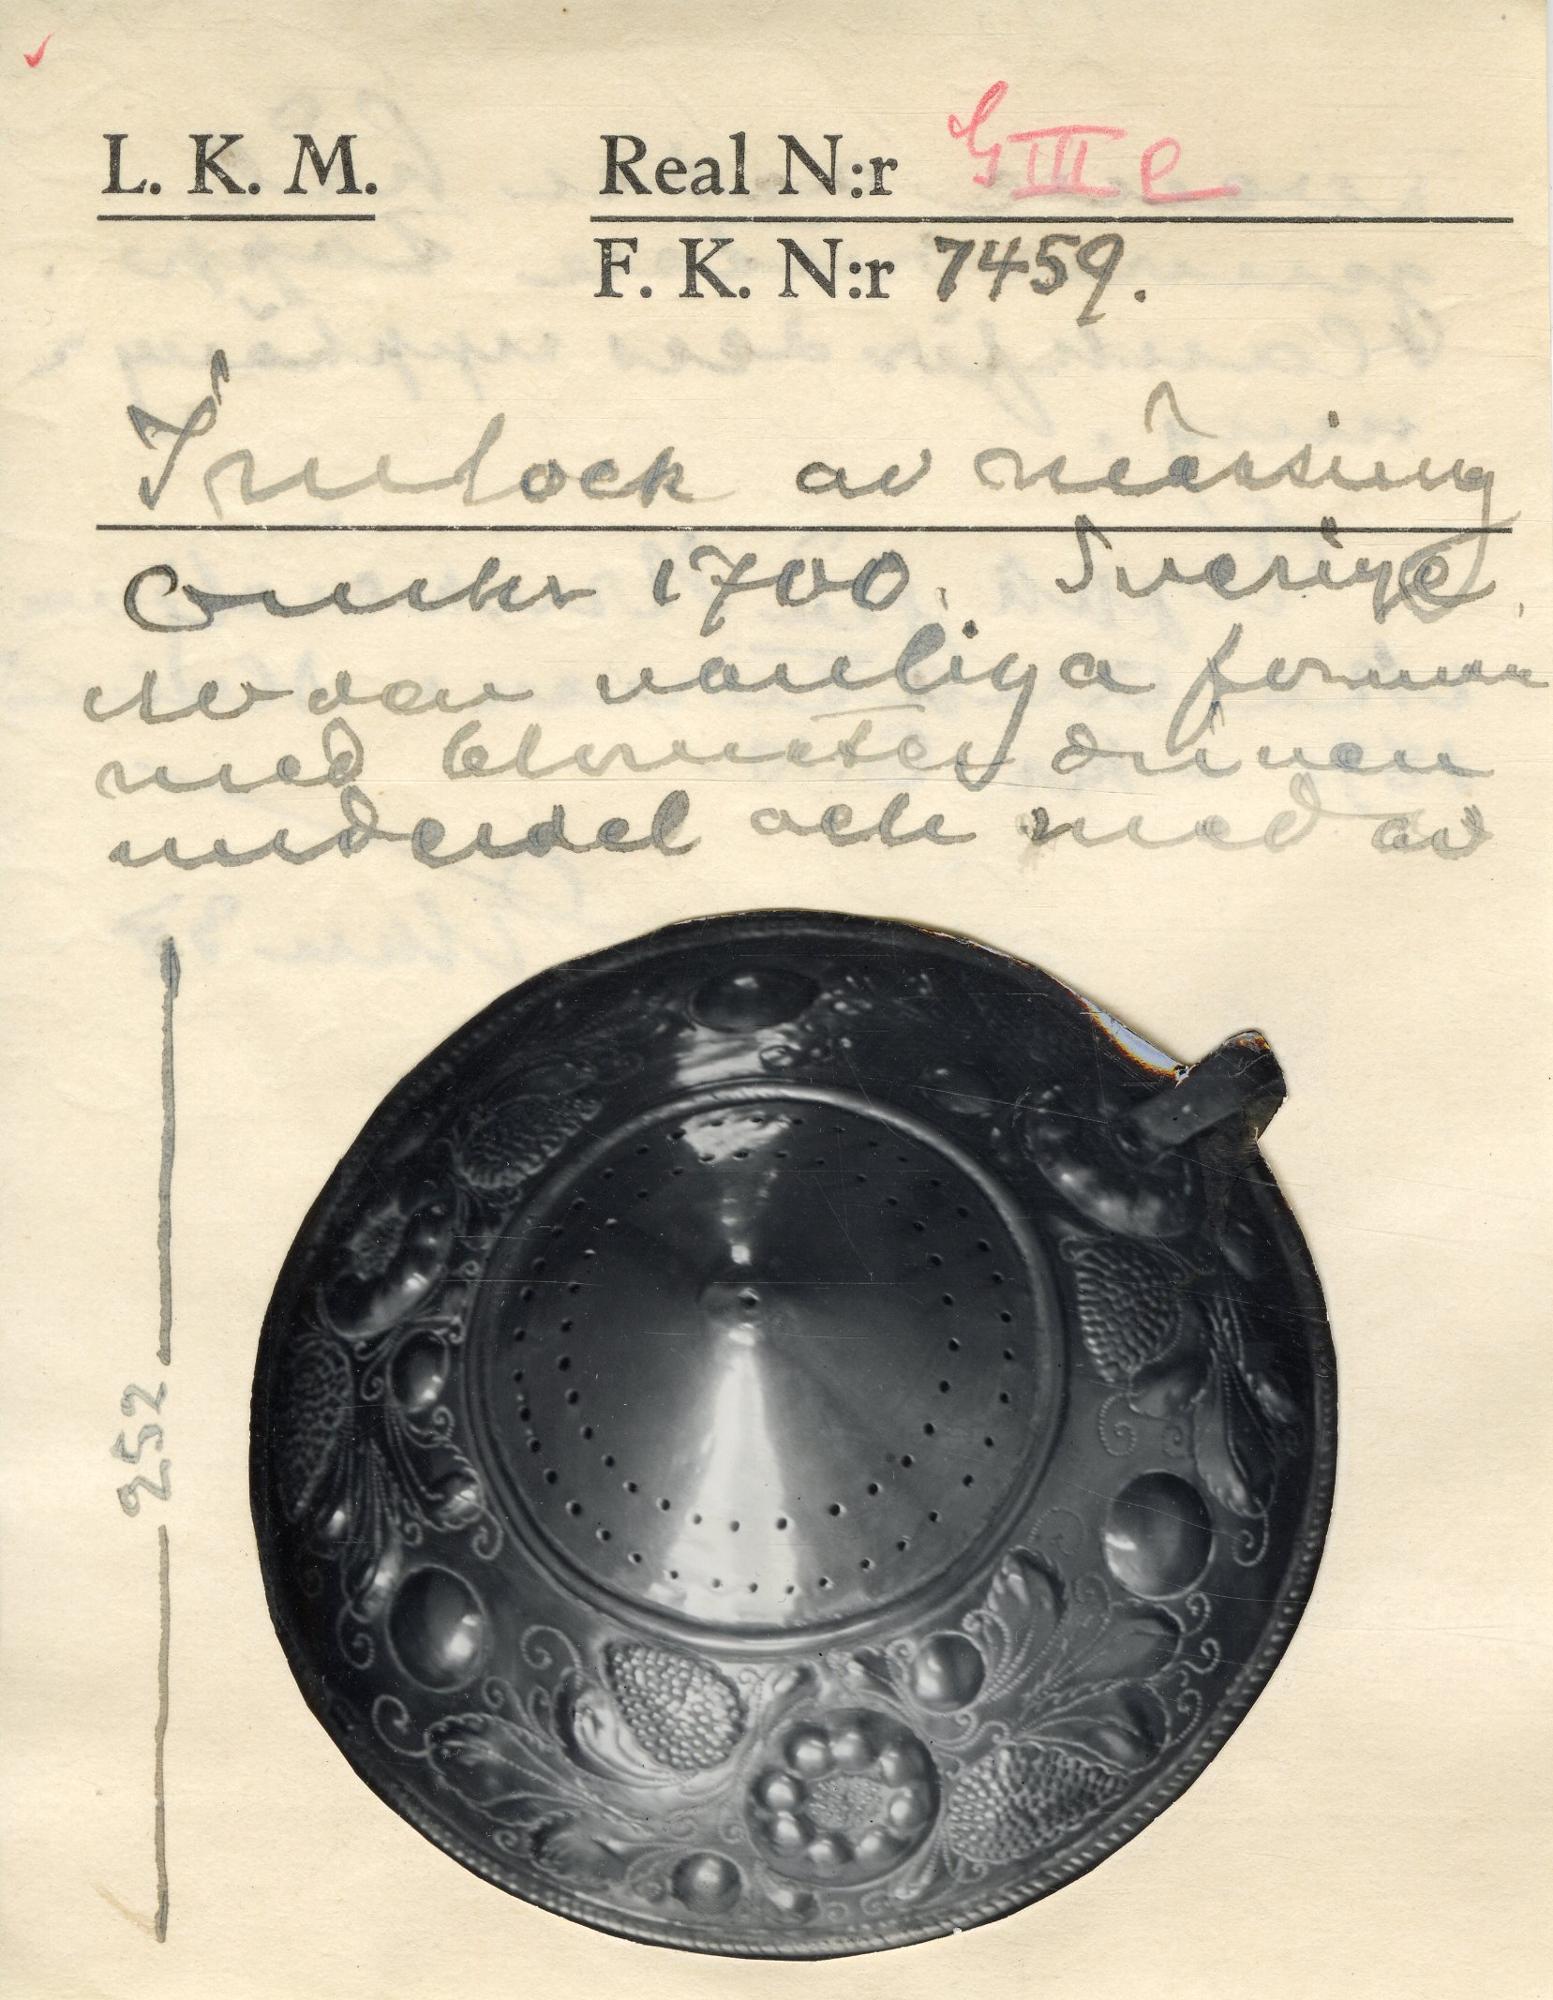 L. K. M.
Real N:r G III e
F. K. N:r 7459.
lock av mässing
Omkr 1700. Sverige.
Av den vanliga formen
med blomster driven
underdel och med av
252